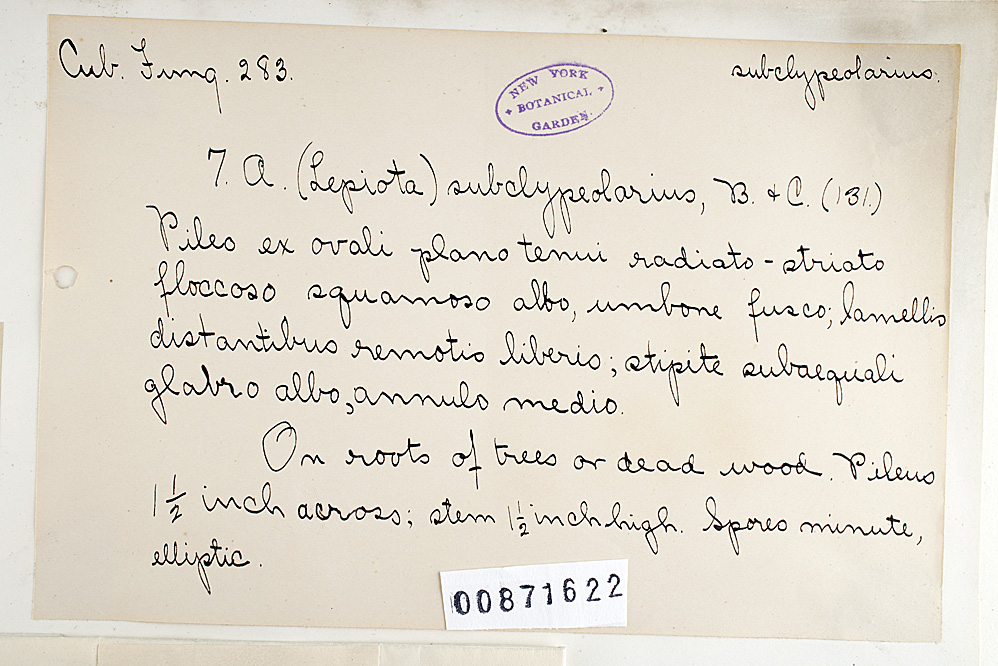 Cub. Fung. 283.
subclypeolarius.
NEW YORK
BOTANICAL
GARDEN.
7. A. (Lepiota) subclypeolarius, B. + C. (131.)
Pileo ex ovali plano tenui radiato-striato
floccoso squamoso albo, umbone fusco; lamellis
distantibus remotis liberis; stipite subaequali
glabro albo, annulo medio.
On roots of trees or dead wood. Pileus
1 1/2 inch across; stem 1 1/2 inch high. Spores minute,
elliptic.
00871622